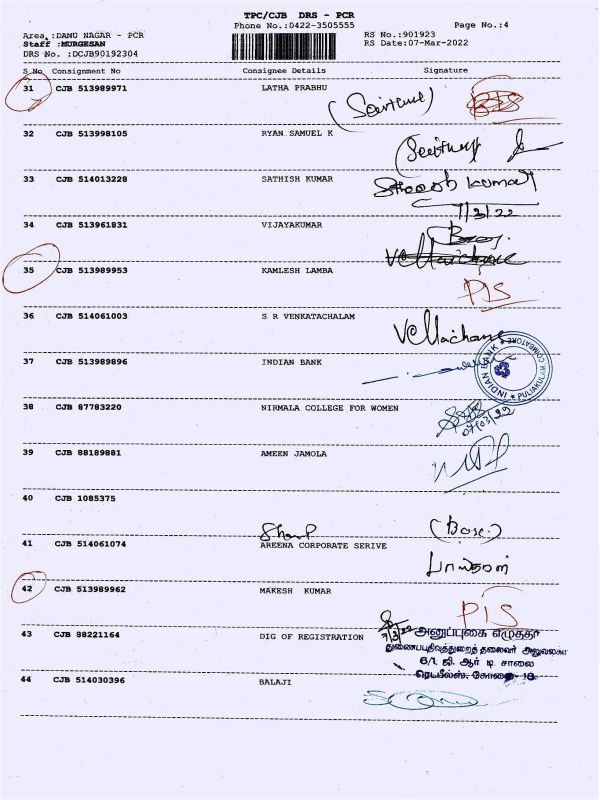 TPC/CJB DRS - PCR
Phone No.:0422-3505555
Page No.:4
Area :DANU NAGAR - PCR
RS No.:901923
Staff :MURGESAN
RS Date:07-Mar-2022
DRS No. :DCJB90192304
S No Consignment No Consignee Details Signature
31 CJB 513989971 LATHA PRABHU
32 CJB 513998105 RYAN SAMUEL K
33 CJB 514013228 SATHISH KUMAR
7/3/22
34 CJB 513961831 VIJAYAKUMAR
35 CJB 513989953 KAMLESH LAMBA
PIS
36 CJB 514061003 S R VENKATACHALAM
37 CJB 513989896 INDIAN BANK
INDIAN BANK * PULIAKULAM COIMBATORE *
38 CJB 87783220 NIRMALA COLLEGE FOR WOMEN
07/03/22
39 CJB 88189881 AMEEN JAMOLA
40 CJB 1085375
(Bose)
41 CJB 514061074 AREENA CORPORATE SERIVE
42 CJB 513989962 MAKESH KUMAR
PIS
7/3/22
அனுப்புகை எழுத்தர்
43 CJB 88221164 DIG OF REGISTRATION
துணைப்பதிவுத்துறைத் தலைவர் அலுவலகம்
6/1, ஜி. ஆர் டி. சாலை
ரெட்பீல்ஸ், கோவை- 18.
44 CJB 514030396 BALAJI